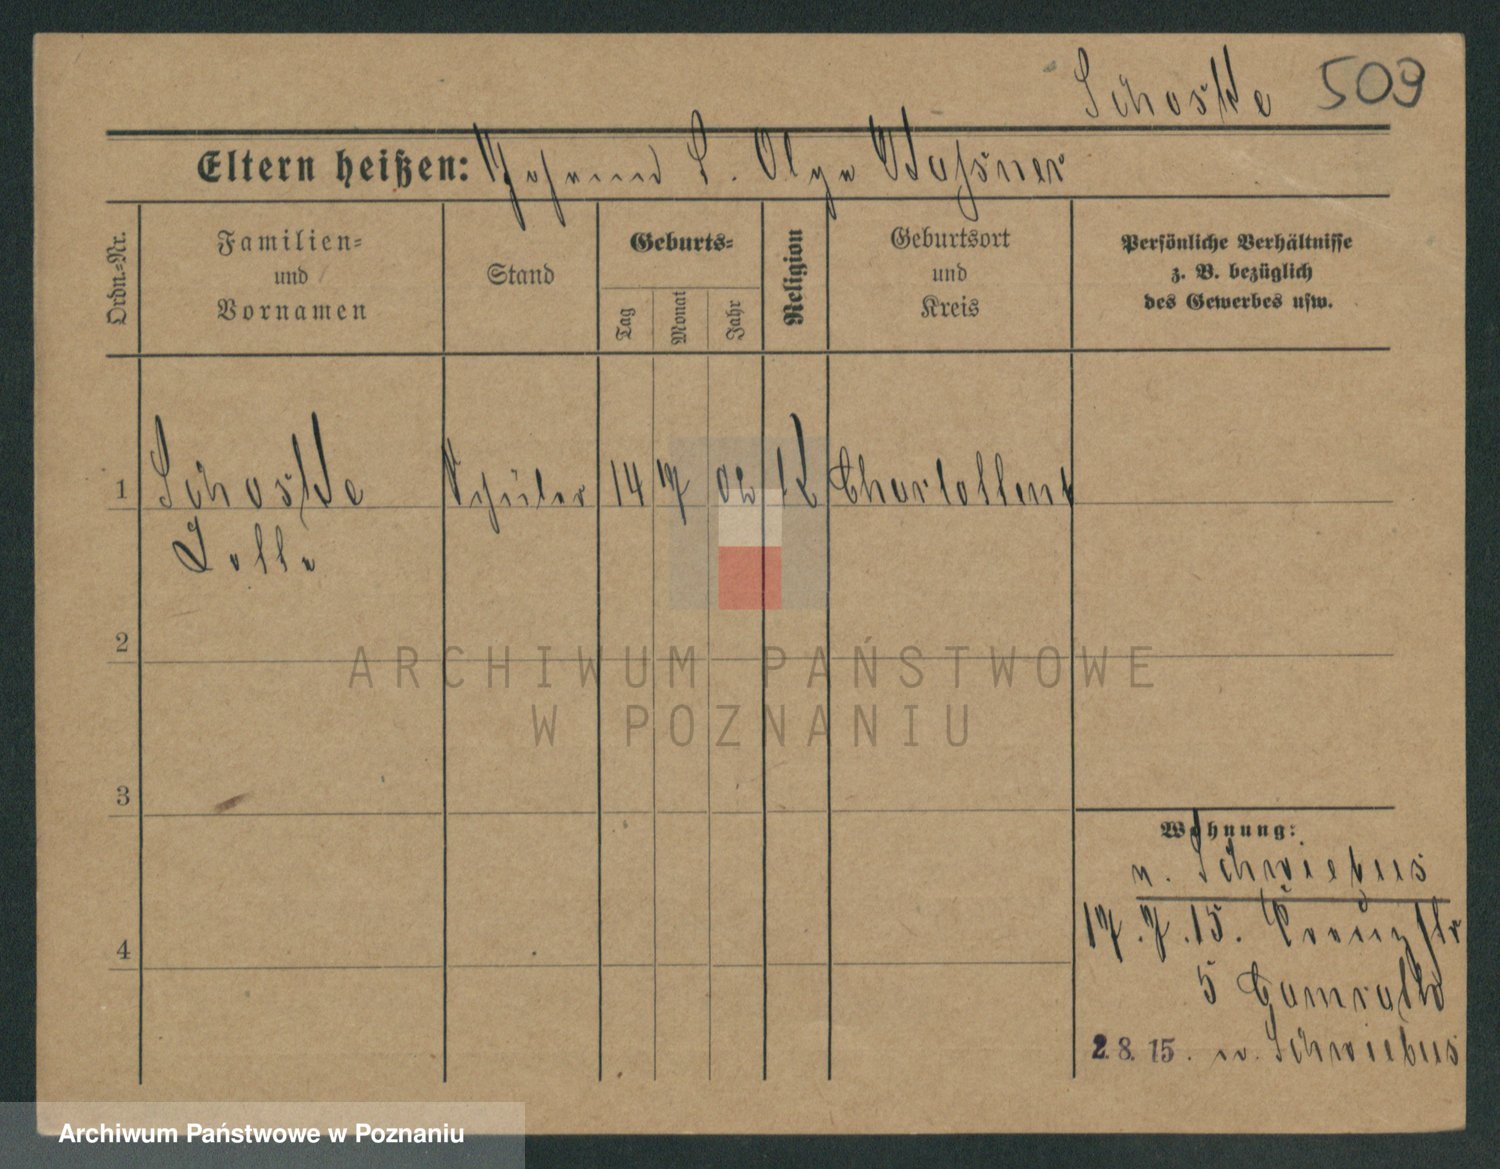 Schostke 509
Eltern heißen: Johann S. Olga Wassner
Ordn.-Nr.
Familien-
und
Vornamen
Stand
Geburts-
Tag
Monat
Jahr
Religion
Geburtsort
und
Kreis
Persönliche Verhältnisse
z. B. bezüglich
des Gewerbes usw.
1 Schostke Schüler 14 7 02 Charlottenb
2
3
4
Wohnung:
v. Schwiebus
17.7.15. Kreuzstr
5
2.8.15. n. Schwiebus
ARCHIWUM PAŃSTWOWE
W POZNANIU
Archiwum Państwowe w Poznaniu